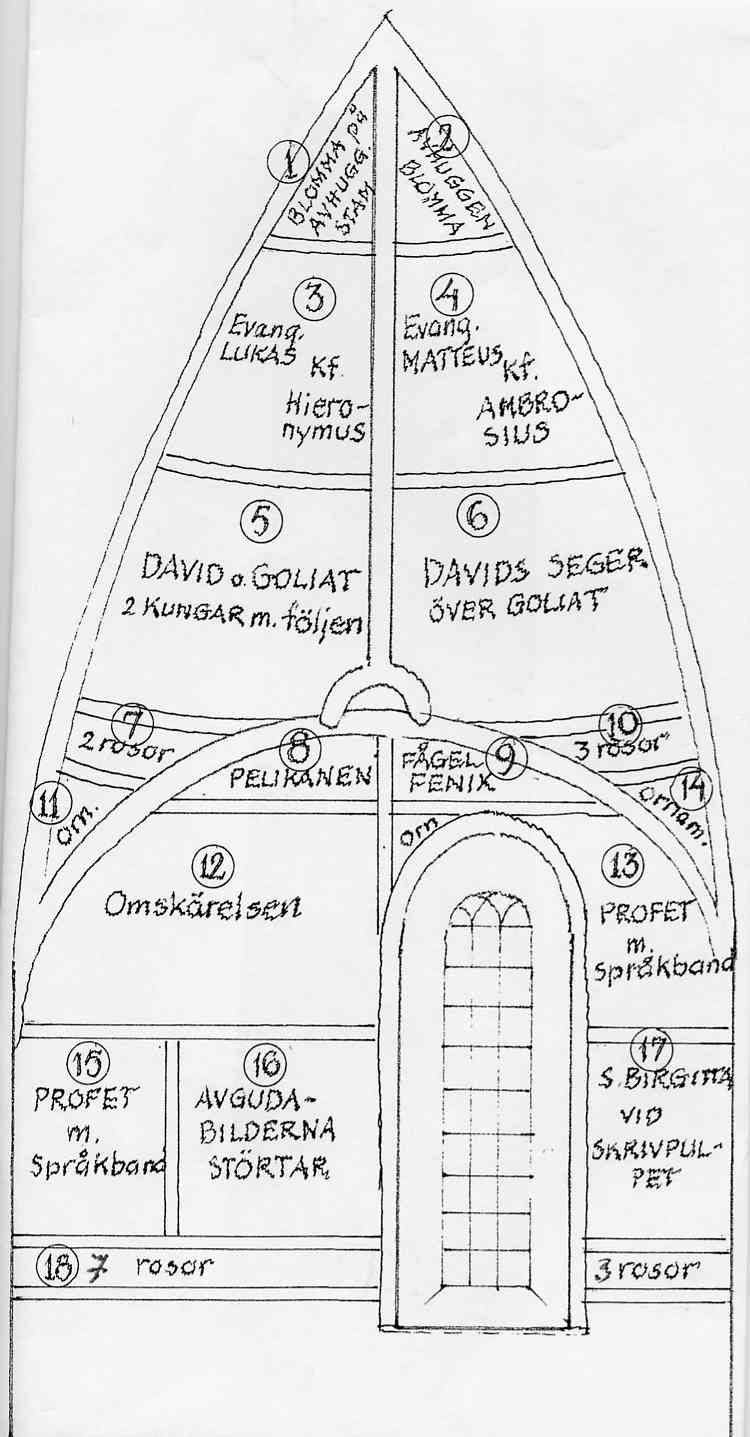 1
BLOMMA på
AVHUGG.
STAM
2
AVHUGGEN
BLOMMA
3
Evang.
LUKAS
Kf.
Hiero-
nymus
4
Evang.
MATTEUS
Kf.
AMBRO-
SIUS
5
DAVID o. GOLIAT
2 KUNGAR m. följen
6
DAVIDS SEGER
ÖVER GOLIAT
7
2 rosor
8
PELIKANEN
9
FÅGEL
FENIX
10
3 rosor
11
orn.
14
ornam.
12
Omskärelsen
orn
13
PROFET
m.
språkband
15
PROFET
m.
Språkband
16
AVGUDA-
BILDERNA
STÖRTAR
17
S. BIRGITTA
VID
SKRIVPUL-
PET
18 7 rosor
3 rosor